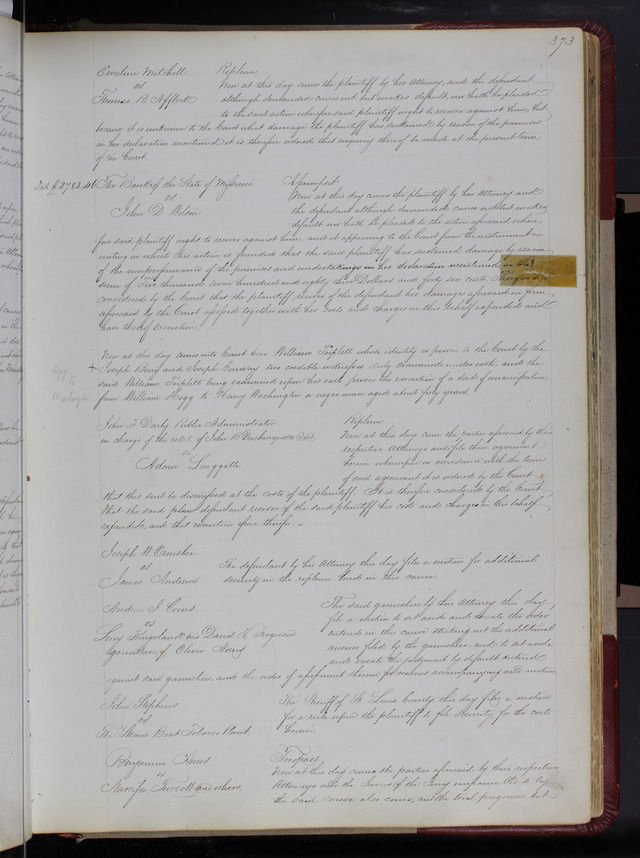 373
Emeline Mitchell Replevin
vs Now at this day comes the plaintiff by her Attorney, and the defendant
Thomas B Affleck although demanded comes not but makes default, nor hath he pleaded
to the said action wherefore said plaintiff ought to recover against him, but
because it is unknown to the Court what damage the plaintiff has sustained by reason of the premises
in her declaration mentioned it is therefore ordered that inquiry thereof be made at the present term
of the Court.
The Bank of the State of Missouri Assumpsit
vs Now at this day comes the plaintiff by her Attorney and
John D Wilson the defendant although demanded comes not but makes
default nor hath he pleaded to the action aforesaid where
fore said plaintiff ought to recover against him and it appearing to the Court from the instrument in
writing on which this action is founded that the said plaintiff has sustained damage by reason
of the nonperformance of the promises and undertakings in her declaration mentioned in the
sum of Two thousand seven hundred and eighty three Dollars and forty six cents
considered by the Court that the plaintiff recover of the defendant her damages aforesaid in form
aforesaid by the Court assessed together with her costs and charges in this behalf expended and
have thereof Execution
Now at this day comes into Court here William Triplett whose identity is proven to the Court by the
Joseph Berry and Joseph Conway two credible witnesses duly examined under oath, and the
said William Triplett being examined upon his oath proves the execution of a deed of emancipation
from William Hogg to Henry Washington a negro man aged about forty years
John F Darby Public Administrator Replevin
in charge of the estate of John B Duchouquette decd. Now at this day come the parties aforesaid by their
vs respective Attorneys and file their agreement
Adam Longgatte herein whereupon in accordance with the terms
of said agreement it is ordered by the Court
that this suit be dismissed at the costs of the plaintiff. It is therefore considered by the Court
that the said defendant recover of the said plaintiff his costs and charges in this behalf
expended, and that execution issue therefor.
Joseph W Ormsbee
vs The defendant by his Attorney this day files a motion for additional
James Andrews security in the replevin bond in this cause.
Andrew J Corns The said garnishees by their Attorney this day
vs file a motion to set aside and vacate the order
Levy Slingoland and David L Ferguson entered in this cause striking out the additional
garnishees of Oliver Avery answer filed by the garnishees and to set aside
and vacate the judgment by default entered
against said garnishees and the order of assessment thereon for reasons accompanying said motion
John Stephens The Sheriff of St Louis County this day files a motion
vs for a rule upon the plaintiff to file security for the costs
The Steam Boat Tobacco Plant herein
Benjamin Ames Trespass
vs Now at this day comes the parties aforesaid by their respective
Narcisse Turcott and others. Attorneys and the Jurors of the Jury empanneled to try
the said cause also come, and the trial progresses but